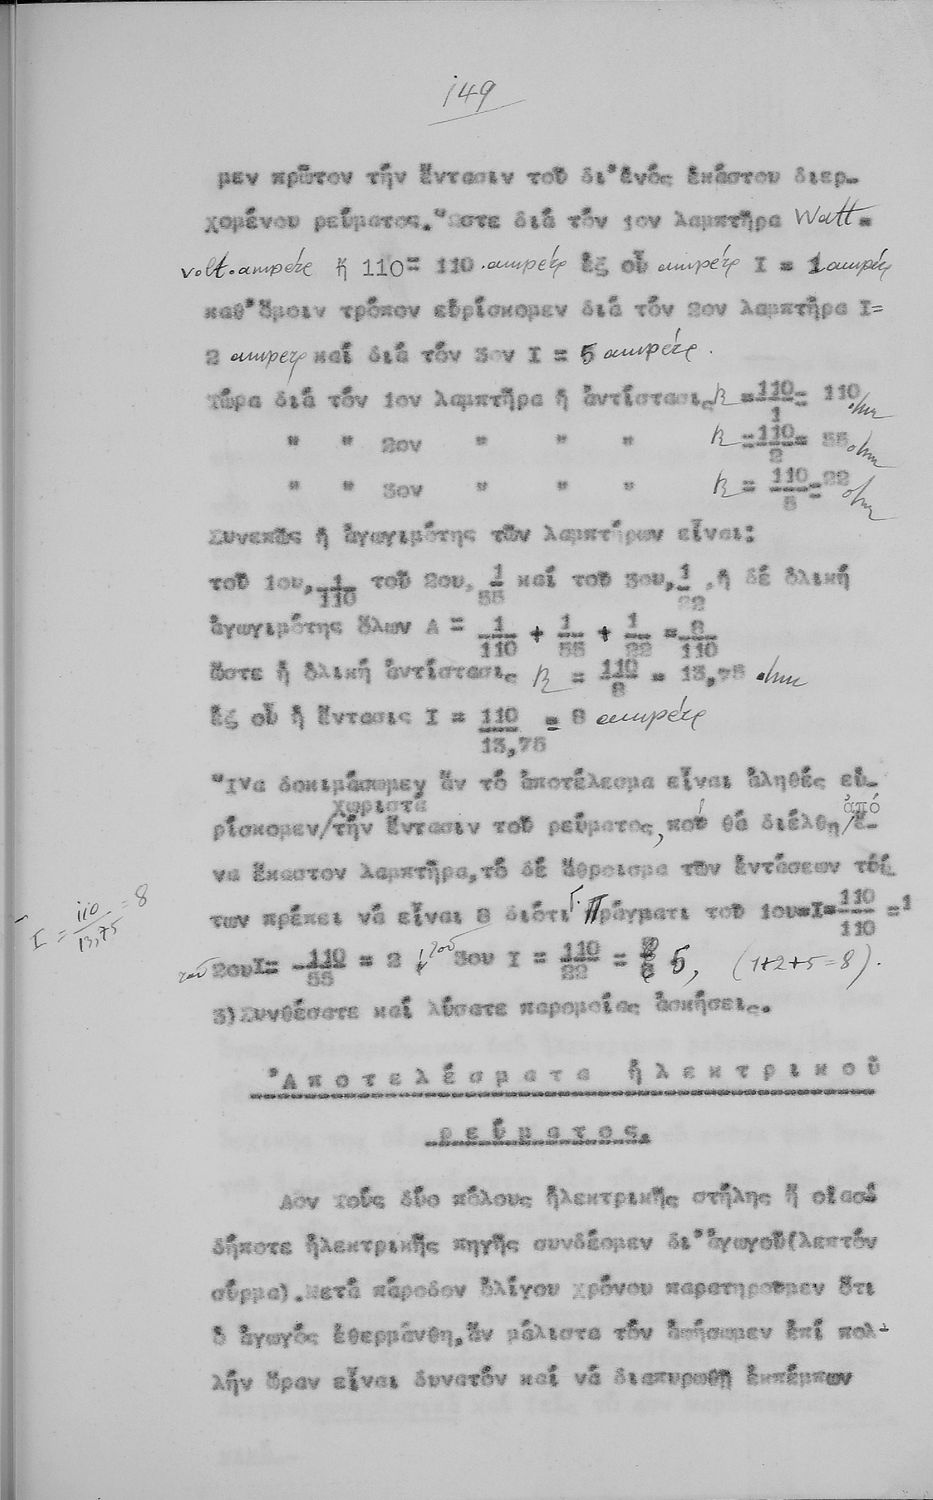 149
μεν πρῶτον τήν ἔντασιν τοῦ δι'ἑνός ἑκάστου διερ-
χομένου ρεύματος."Ωστε διά τόν 1ον λαμπτῆρα Watt =
volt.αμπέρ ἤ 110 = 110 .αμπέρ ἐξ οὗ αμπέρ I = 1 αμπέρ
καθ'ὅμοιν τρόπον εὑρίσκομεν διά τόν 2ον λαμπτῆρα I=
2 αμπέρ καί διά τόν 3ον I = 5 αμπέρ.
Τώρα διά τόν 1ον λαμπτῆρα ἡ ἀντίστασις R = 110/1 = 110 .ὠμ
" " 2ον " " " R = 110/2 = 55 ὠμ
" " 3ον " " " R = 110/5 = 22 ὠμ
Συνεπῶς ἡ ἀγωγιμότης τῶν λαμπτήρων εἶναι:
τοῦ 1ου, 1/110 τοῦ 2ου, 1/55 καί τοῦ 3ου, 1/22 , ἡ δέ ὁλική
ἀγωγιμότης ὅλων A = 1/110 + 1/55 + 1/22 = 8/110
ὥστε ἡ ὁλική ἀντίστασις R = 110/8 = 13,75 .ὠμ
ἐξ οὗ ἡ ἔντασις I = 110/13,75 = 8 αμπέρ
"Ινα δοκιμάσωμεν ἄν τό ἀποτέλεσμα εἶναι ἀληθές εὑ-
χωριστά ἀπό
ρίσκομεν/τήν ἔντασιν τοῦ ρεύματος, πού θά διέλθη/ἕ-
να ἕκαστον λαμπτῆρα, τό δέ ἄθροισμα τῶν ἐντάσεων τού-
των πρέπει νά εἶναι 8 διότι Πράγματι τοῦ 1ου=I= 110/110 = 1
I = 110/13,75 = 8
τοῦ 2ου I = 110/55 = 2 τοῦ 3ου I = 110/22 = 5, (1+2+5=8).
3) Συνθέσατε καί λύσατε παρομοίας ἀσκήσεις.
'Αποτελέσματα ἠλεκτρικοῦ
ρεύματος.
Δον τούς δύο πόλους ἠλεκτρικῆς στήλης ἤ οἱασ
δήποτε ἠλεκτρικῆς πηγῆς συνδέομεν δι'ἀγωγοῦ(λεπτόν
σύρμα).μετά πάροδον ὀλίγου χρόνου παρατηροῦμεν ὅτι
ὁ ἀγωγός ἐθερμάνθη, ἄν μάλιστα τόν ἀφήσωμεν ἐπί πολ-
λήν ὥραν εἶναι δυνατόν καί νά διαπυρωθῇ ἐκπέμπων